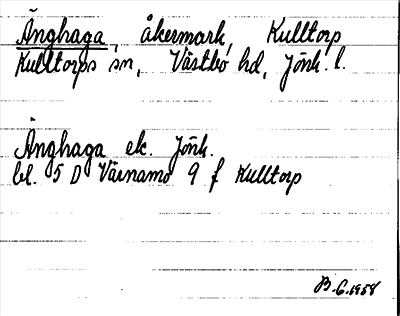 Änghaga, åkermark, Kulltorp
Kulltorps sn, Västbo hd, Jönk. l.
Änghaga ek. Jönk.
bl. 5 D Värnamo 9 f Kulltorp
B.G.1958